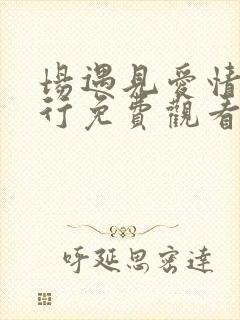 場遇見愛情
行免費觀看
呼延思密達